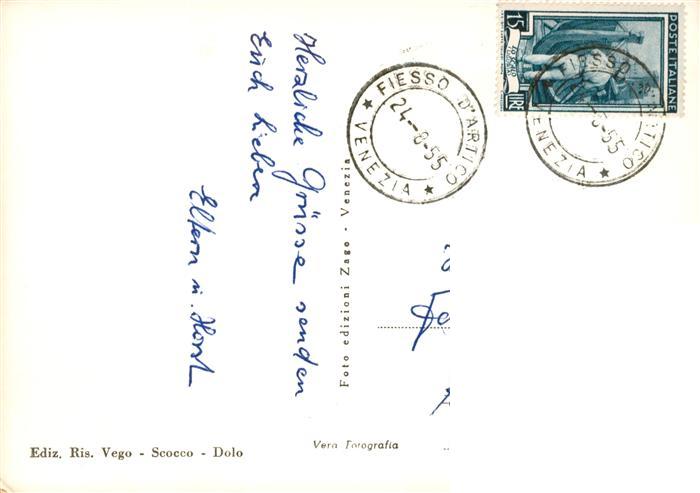 Herzliche Grüsse senden
Euch Lieben
Eltern u. Horst
Foto edizioni Zago - Venezia
FIESSO D'ARTICO
24-8-55
★ VENEZIA ★
15
LIRE
POSTE ITALIANE
FIESSO D'ARTICO
-8-55
VENEZIA ★
Vera Fotografia
Ediz. Ris. Vego - Scocco - Dolo